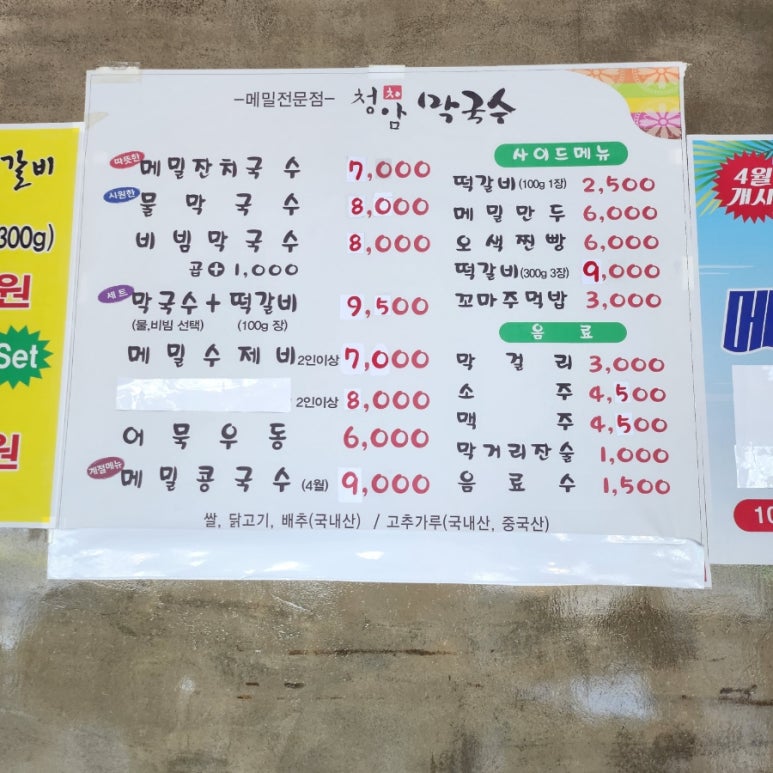 갈비
300g)
원
Set
원
-메밀전문점- 청암 막국수
따뜻한 메밀잔치국수 7,000
시원한 물막국수 8,000
비빔막국수 8,000
곱+1,000
세트 막국수+떡갈비 9,500
(물,비빔 선택) (100g 장)
메밀수제비 2인이상 7,000
2인이상 8,000
어묵우동 6,000
계절메뉴 메밀콩국수 (4월) 9,000
사이드메뉴
떡갈비(100g 1장) 2,500
메밀만두 6,000
오색찐빵 6,000
떡갈비(300g 3장) 9,000
꼬마주먹밥 3,000
음료
막걸리 3,000
소주 4,500
맥주 4,500
막거리잔술 1,000
음료수 1,500
쌀, 닭고기, 배추(국내산) / 고추가루(국내산, 중국산)
4월
개시
메
10